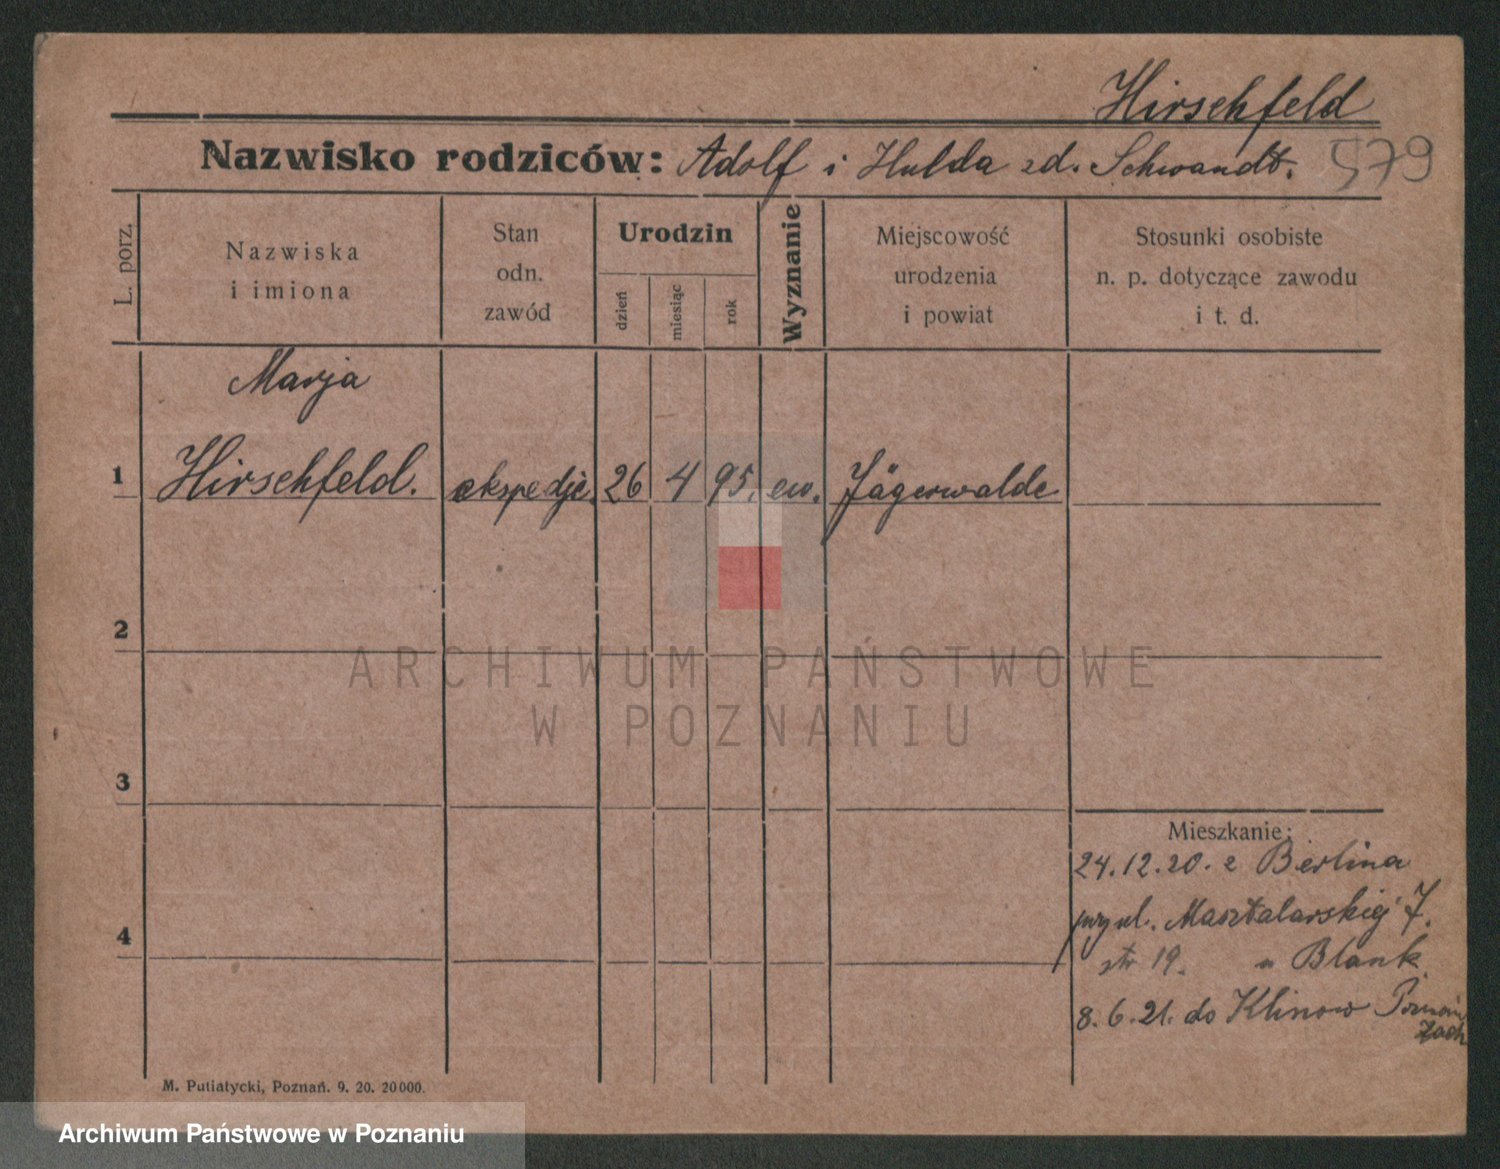 Hirschfeld
Nazwisko rodziców: Adolf i Hulda zd. Schwandt. 579
L. porz.
Nazwiska
i imiona
Stan
odn.
zawód
Urodzin
dzień
miesiąc
rok
Wyznanie
Miejscowość
urodzenia
i powiat
Stosunki osobiste
n. p. dotyczące zawodu
i t. d.
Marja
1 Hirschfeld. ekspedje. 26 4 95. ew. Jägerwalde
2
ARCHIWUM PAŃSTWOWE
W POZNANIU
3
Mieszkanie:
24.12.20. z Berlina
przy ul. Masztalarskiej 7.
str 19. u Blank.
4
8.6.21. do Klinow Poznań
Zach
M. Putiatycki, Poznań. 9. 20. 20000.
Archiwum Państwowe w Poznaniu